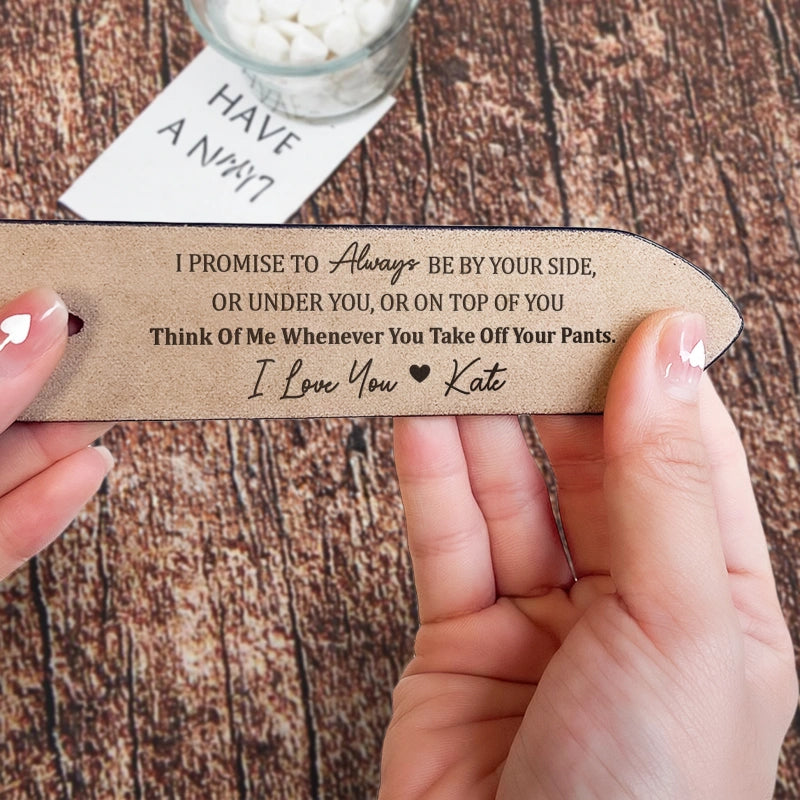 HAVE
A
I PROMISE TO Always BE BY YOUR SIDE,
OR UNDER YOU, OR ON TOP OF YOU
Think Of Me Whenever You Take Off Your Pants.
I Love You ♥ Kate